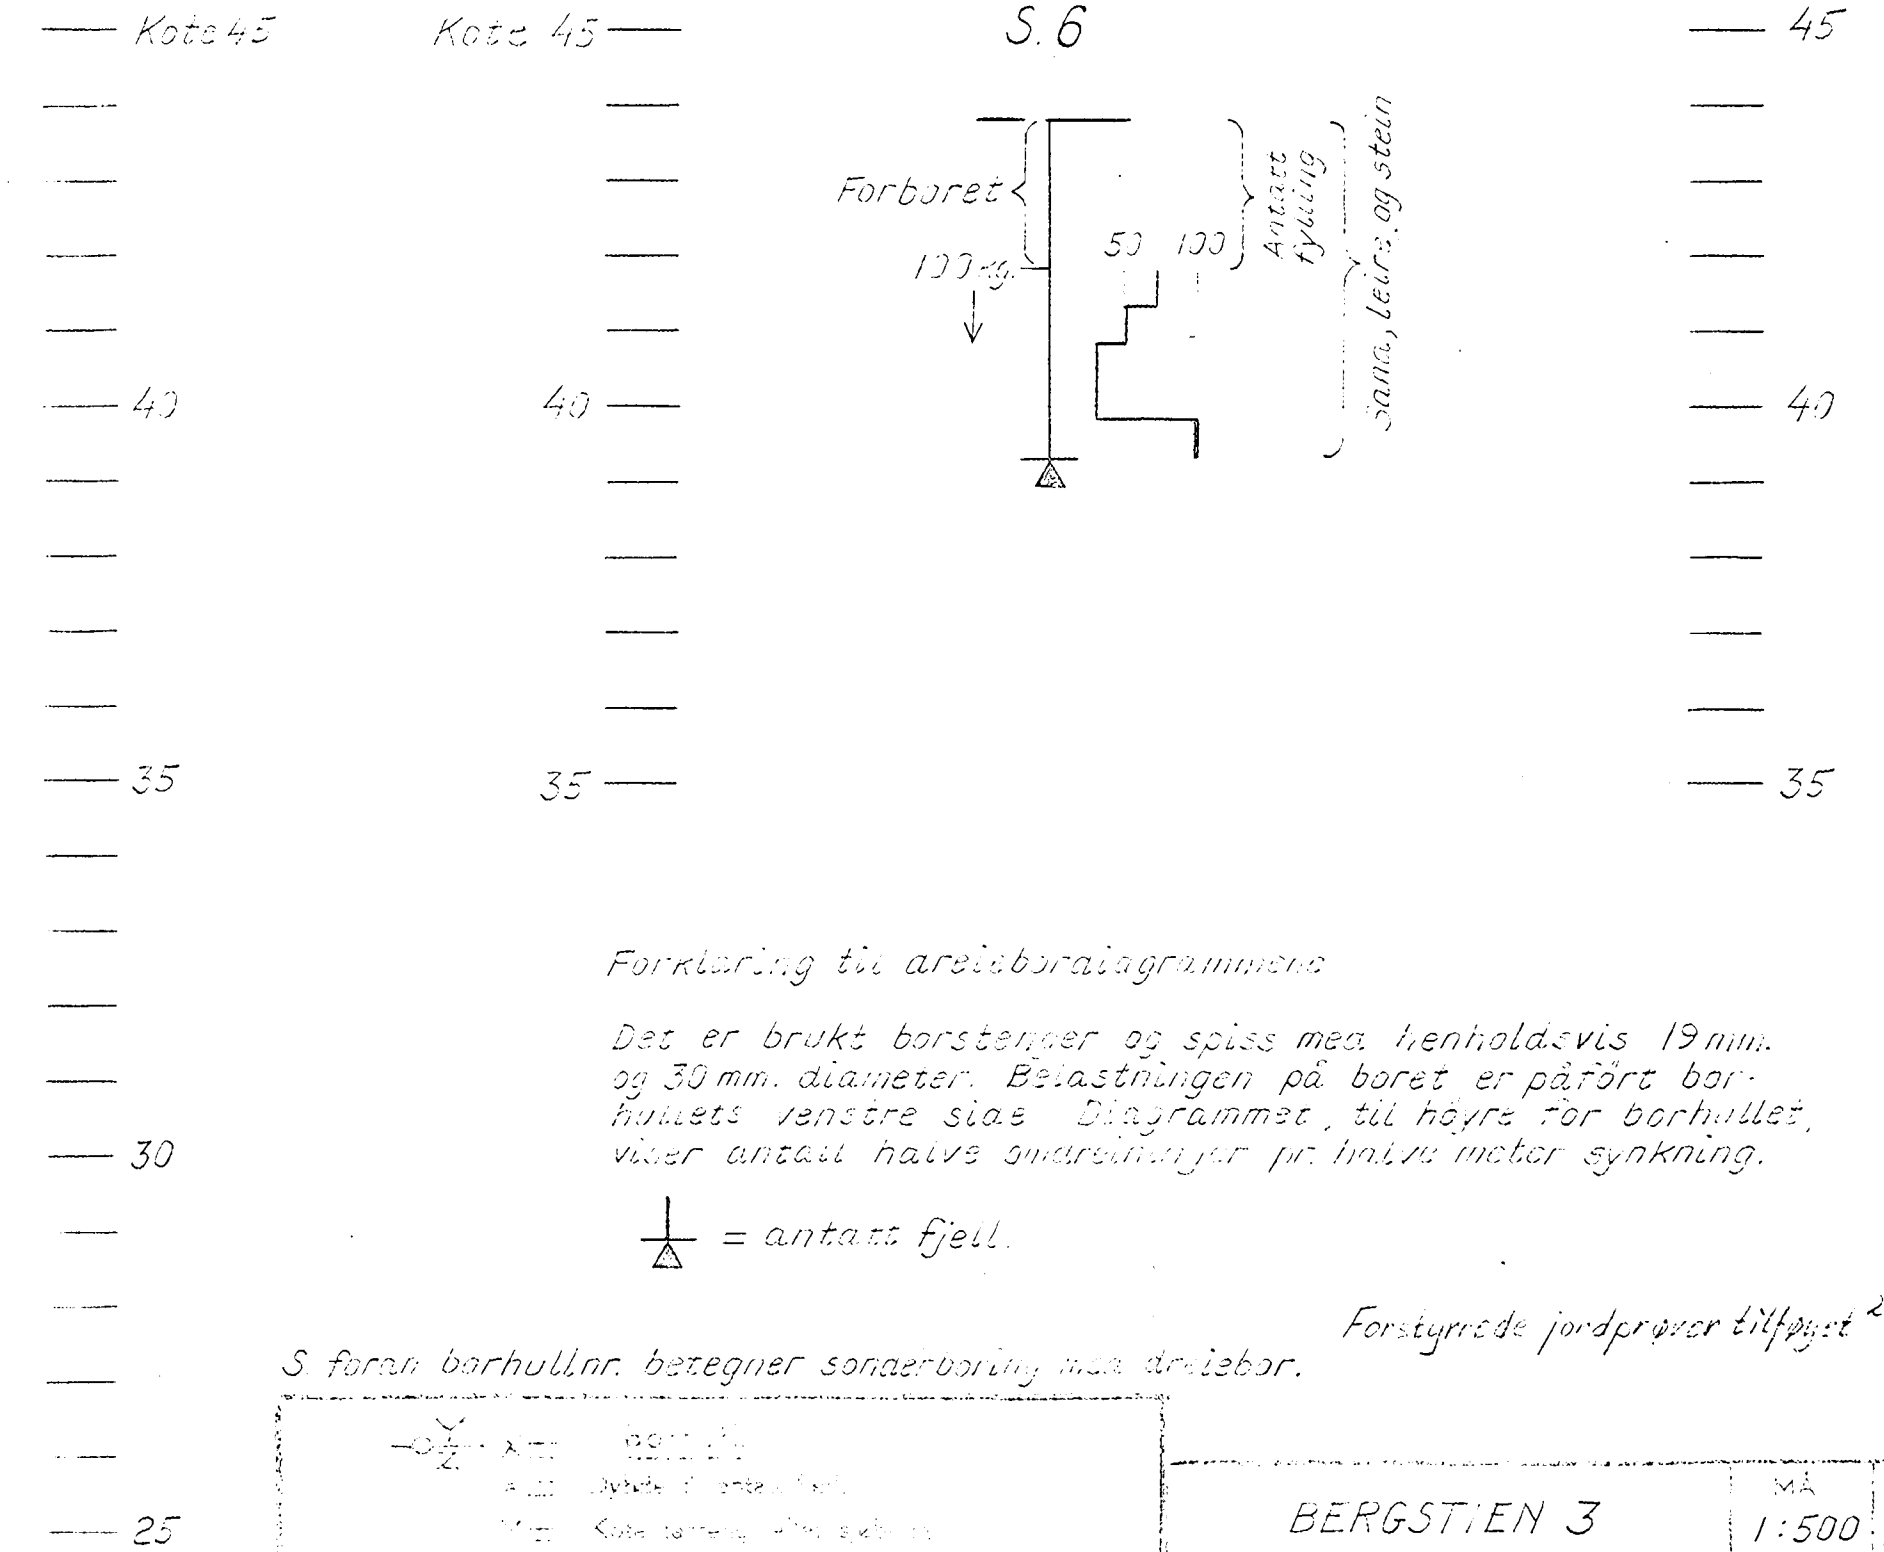 Kote 45
Kote 45
S. 6
45
Forboret
100 kg.
50
100
Antatt
fylling
Sand, leire, og stein
40
40
40
35
35
35
Forklaring til dreiebordiagrammene
Det er brukt borstenger og spiss med henholdsvis 19 mm.
og 30 mm. diameter. Belastningen på boret er påført bor-
hullets venstre side Diagrammet, til høyre for borhullet,
viser antall halve omdreininger pr. halve meter synkning.
30
= antatt fjell.
Forstyrrede jordprøver tilføyet 2
S. foran borhullnr. betegner sonderboring med dreiebor.
BERGSTIEN 3
MÅ
1:500
25